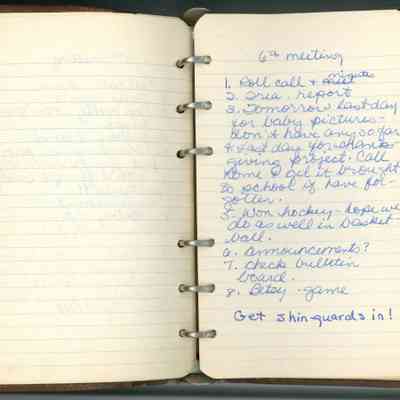 6th meeting
1. Roll call + minutes
2. Trea. report
3. Tomorrow last day
for baby pictures -
don't have any so far
4. Last day for thanks-
giving project. Call
home & get it brought
to school if have for-
gotten.
5. Won hockey - hope we
do as well in basket
ball.
6. Announcements?
7. Check bulletin
board.
8. Betsy - game
Get shin-guards in!